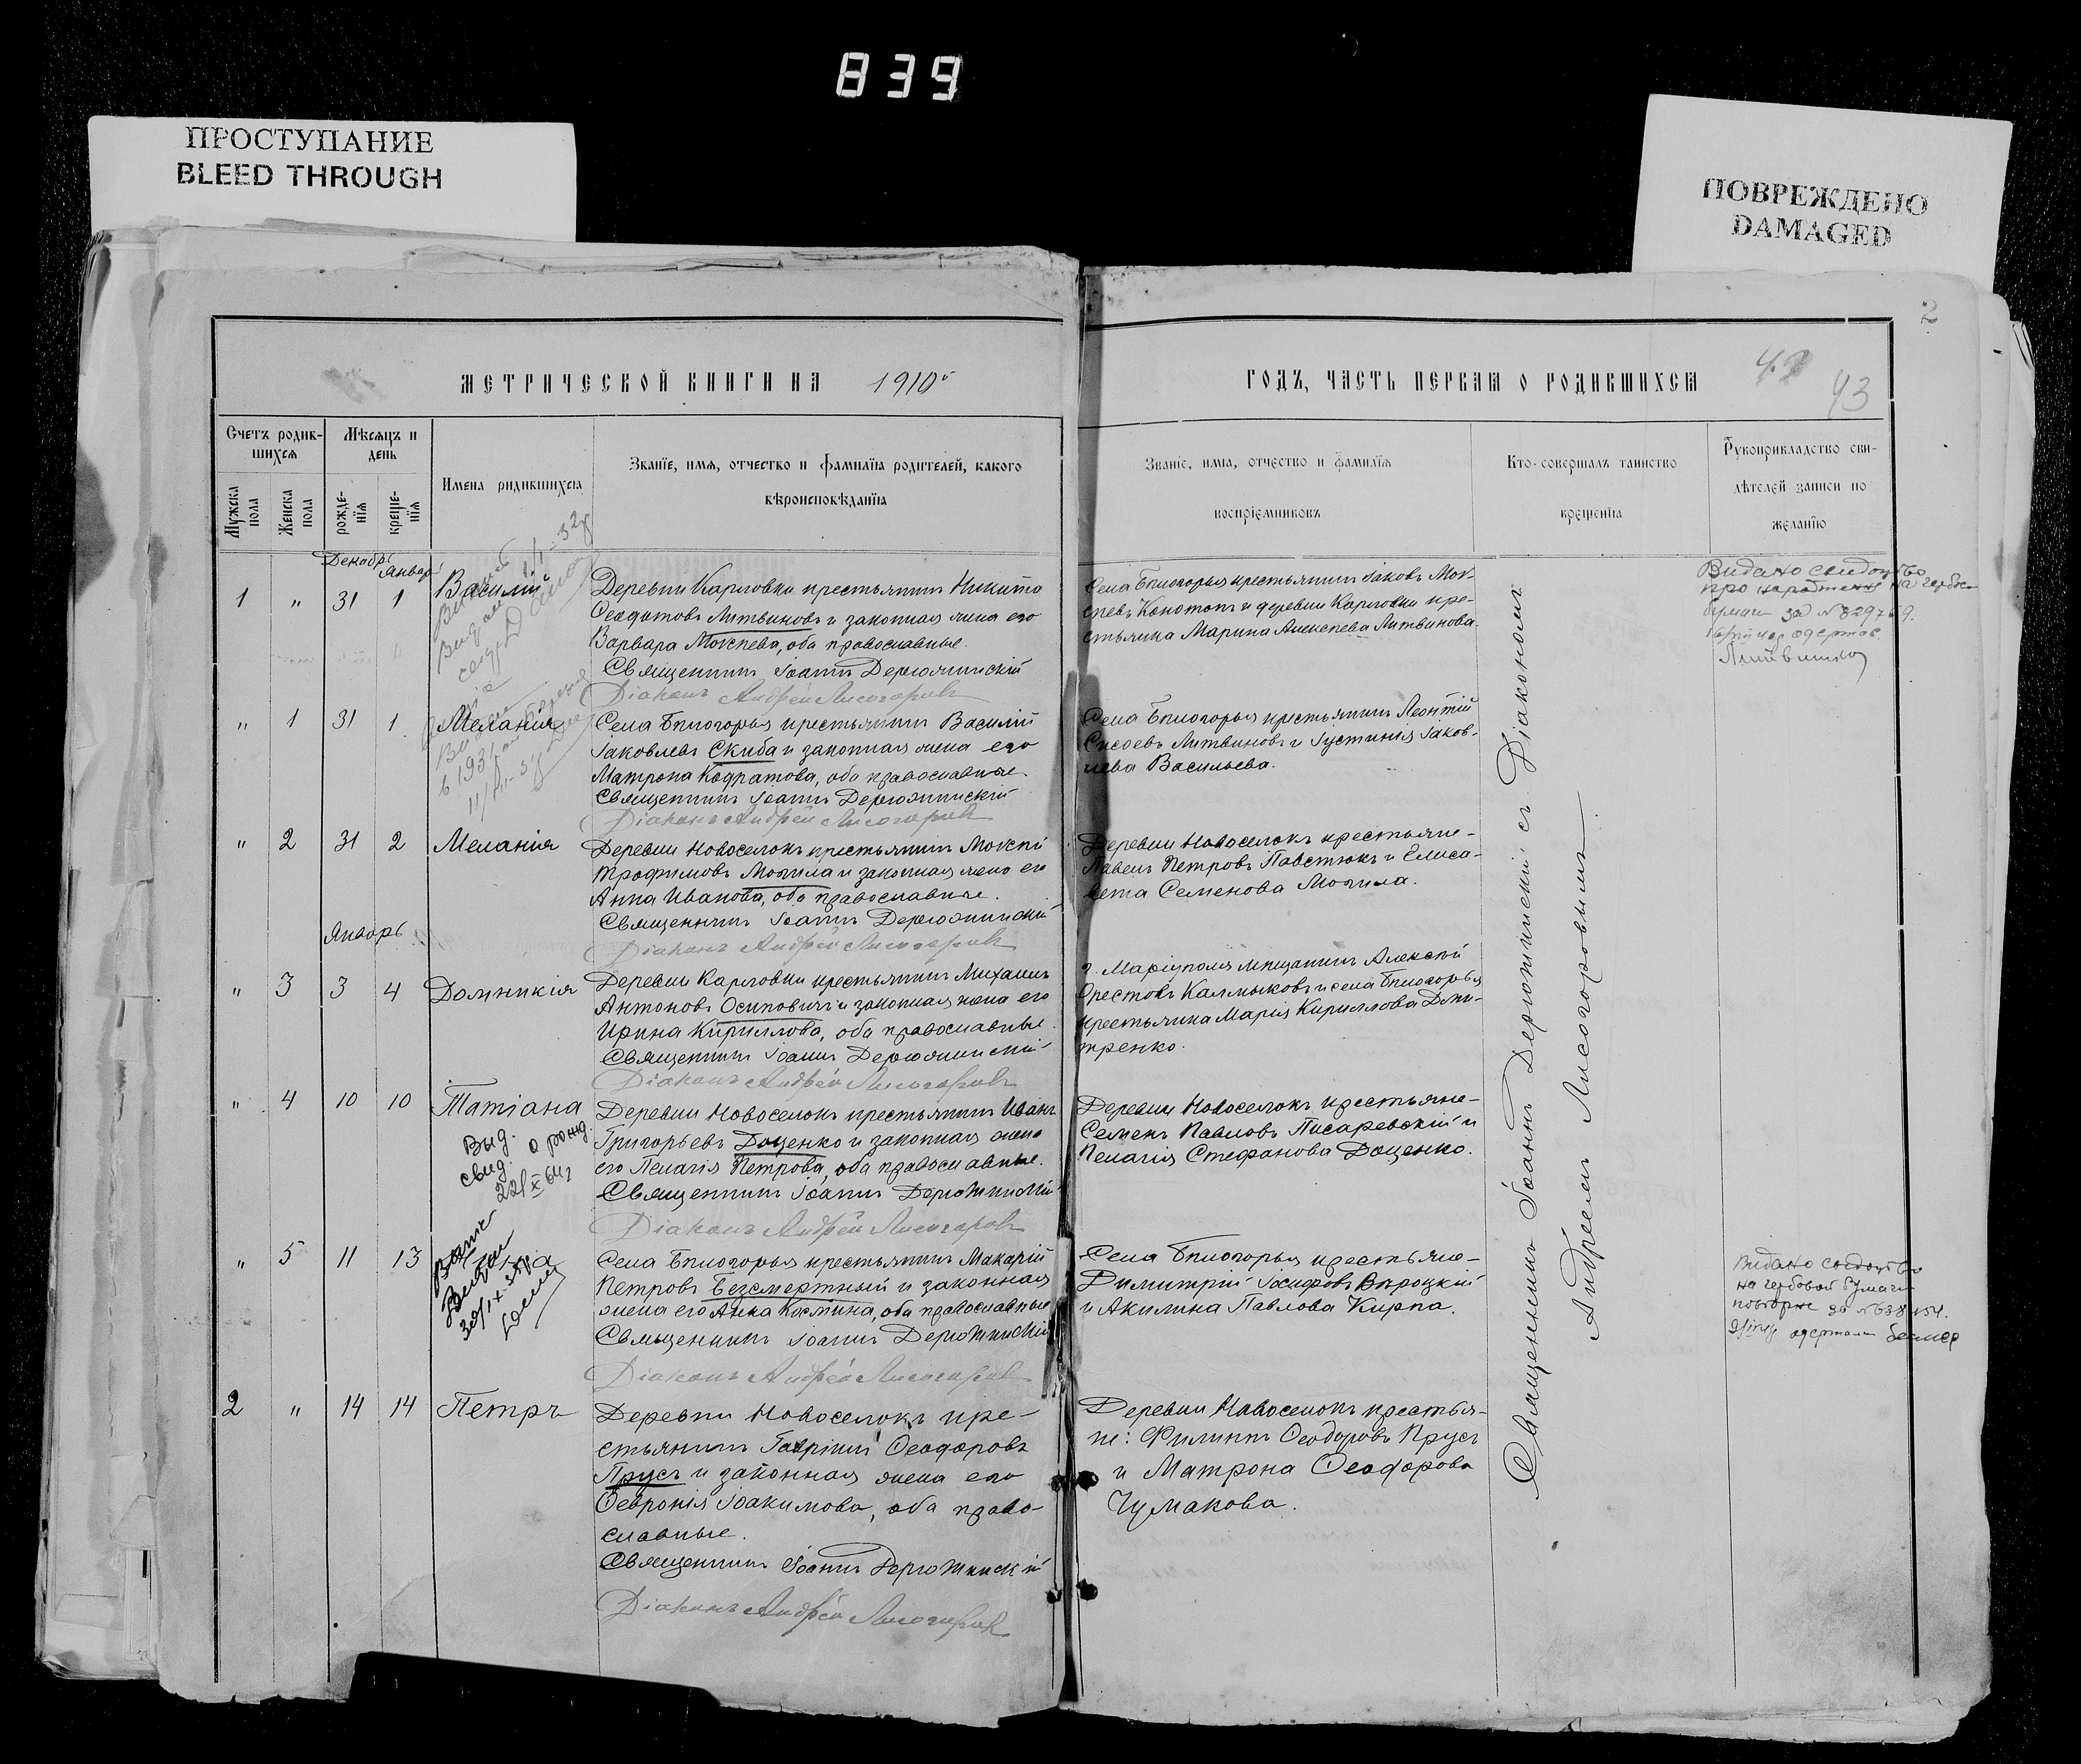 839
ПРОСТУПАНИЕ
BLEED THROUGH
ПОВРЕЖДЕНО
DAMAGED
2
МЕТРИЧЕСКОЙ КНИГИ НА 1910й
ГОДЪ, ЧАСТЬ ПЕРВАЯ О РОДИВШИХСЯ
43
Счетъ родив-
шихся
Мѣсяцъ и
день
Мужска
пола
Женска
пола
рожде-
нїя
креще-
нїя
Имена родившихся
Званїе, имя, отчество и фамилїя родителей, какого
вѣроисповѣданїя
Званїе, имя, отчество и фамилїя
воспрїемниковъ
Кто совершалъ таинство
крещенїя
Рукоприкладство сви-
дѣтелей записи по
желанїю
Декабрь
Январь
1 " 31 1 Василій
Деревни Карловки крестьянинъ Никита
Ѳеодотовъ Литвиновъ и законная жена его
Варвара Мокіева, оба православные.
Священникъ Іоаннъ Дерюжинскій
Діаконъ Андрей Лисогоровъ
Села Бѣлогорья крестьянинъ Іаковъ Мок-
іевъ Конотопъ и деревни Карловки кре-
стьянка Марина Алексѣева Литвинова.
Видано свидоцтво
за № 829769.
" 1 31 1 Меланія
Села Бѣлогорья крестьянинъ Василій
Іаковлевъ Скиба и законная жена его
Матрона Кодратова, оба православные.
Священникъ Іоаннъ Дерюжинскій
Діаконъ Андрей Лисогоровъ
Села Бѣлогорья крестьянинъ Леонтій
Сисоевъ Литвиновъ и Іустинія Іаков-
лева Васильева.
" 2 31 2 Меланія
Деревни Новоселокъ крестьянинъ Мокій
Трофимовъ Могила и законная жена его
Анна Иванова, оба православные.
Священникъ Іоаннъ Дерюжинскій
Діаконъ Андрей Лисогоровъ
Деревни Новоселокъ крестьяне-
Павелъ Петровъ Павстюкъ и Елиса-
вета Семенова Могила.
Январь
" 3 3 4 Домникія
Деревни Карловки крестьянинъ Михаилъ
Антоновъ Осиповичъ и законная жена его
Ирина Кириллова, оба православные.
Священникъ Іоаннъ Дерюжинскій
Діаконъ Андрей Лисогоровъ
г. Маріуполя мѣщанинъ Алексѣй
Орестовъ Калмыковъ и села Бѣлогорья
крестьянка Марія Кириллова Дми-
тренко.
" 4 10 10 Татіана
Выд.
свид. о рожд.
22/X 64г
Деревни Новоселокъ крестьянинъ Иванъ
Григорьевъ Доценко и законная жена
его Пелагія Петрова, оба православные.
Священникъ Іоаннъ Дерюжинскій
Діаконъ Андрей Лисогоровъ
Деревни Новоселокъ крестьяне-
Семенъ Павловъ Писаревскій и
Пелагія Стефанова Доценко.
" 5 11 13
Села Бѣлогорья крестьянинъ Макарій
Петровъ Безсмертный и законная
жена его Анна Космина, оба православные
Священникъ Іоаннъ Дерюжинскій
Діаконъ Андрей Лисогоровъ
Села Бѣлогорья крестьяне-
Димитрій Іосифовъ Вѣроцкій
и Акилина Павлова Кирпа.
Видано свидоцтво
на гербовой бумаги
2 " 14 14 Петръ
Деревни Новоселокъ кре-
стьянинъ Гавріилъ Ѳеодоровъ
Прусъ и законная жена его
Ѳевронія Іоакимова, оба право-
славные.
Священникъ Іоаннъ Дерюжинскій
Діаконъ Андрей Лисогоровъ
Деревни Новоселокъ крестья-
не: Филиппъ Ѳеодоровъ Прусъ
и Матрона Ѳеодорова
Чумакова.
Священникъ Іоаннъ Дерюжинскій съ Діакономъ
Андреемъ Лисогоровымъ